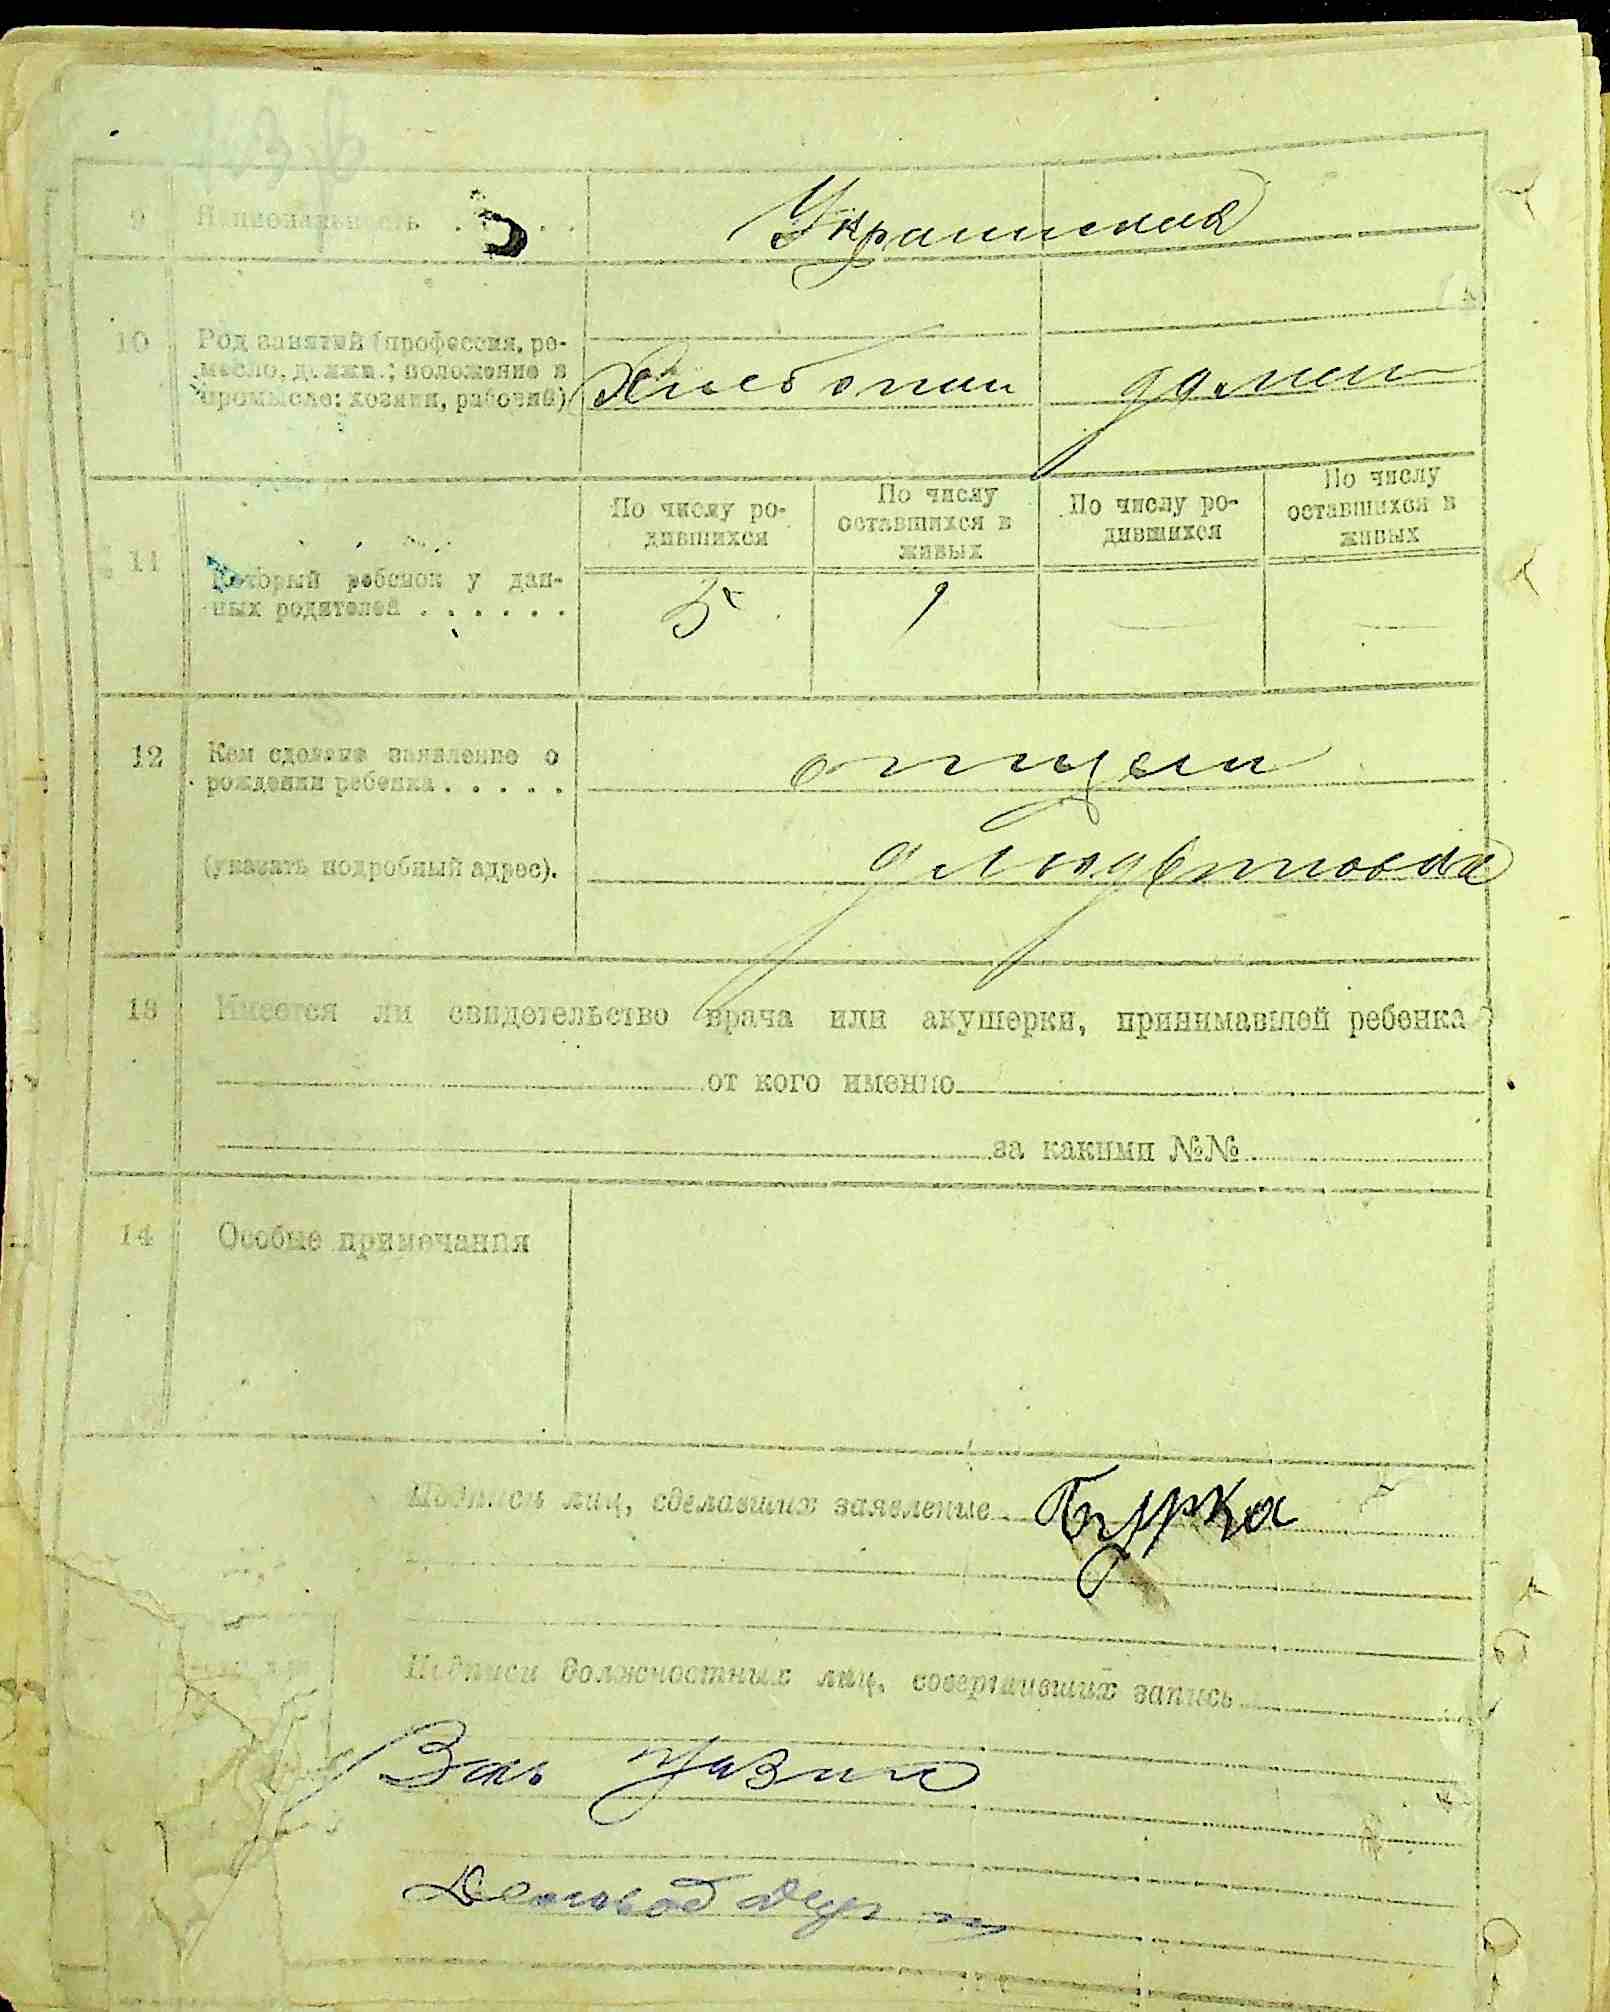 9 Национальность . . . .
Украинская
10 Род занятий (профессия, ро-
месло, должн.; положение в
промысле: хозяин, рабочий)
Хлебопаш домаш
11 Который ребенок у дан-
ных родителей . . . . . .
По числу ро-
дившихся
По числу
оставшихся в
живых
По числу ро-
дившихся
По числу
оставшихся в
живых
5 1 — —
12 Кем сделано заявление о
рождении ребенка . . . . .
отцем
(указать подробный адрес).
13 Имеется ли свидетельство врача или акушерки, принимавшей ребенка
от кого именно
за какими №№
14 Особые примечания
Подписи лиц, сделавших заявление Бурка
Подписи должностных лиц, совершивших запись
Деловод